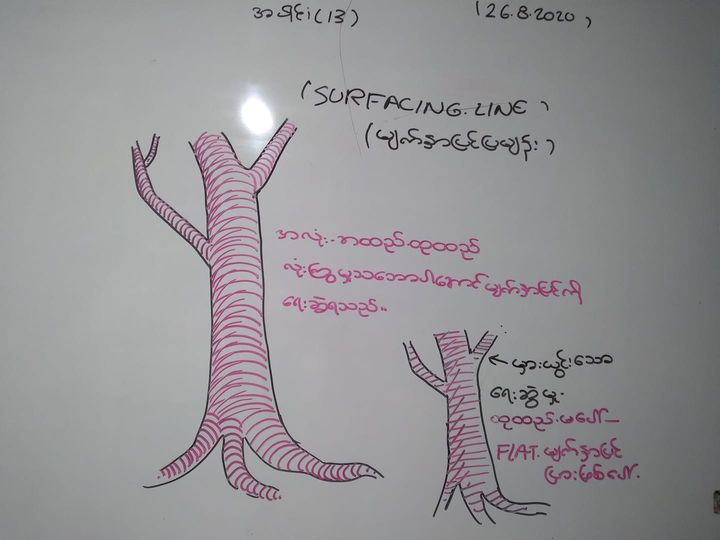 အပိုင်း(13)
(26.8.2020)
(SURFACING.LINE)
(မျက်နှာပြင်ပြမျဉ်း)
အလုံး.အထည်.ထုထည်
လုံးကြွမှုသဘောပါအောင်မျက်နှာပြင်ကို
ရေးဆွဲရသည်..
←မှားယွင်းသော
ရေးဆွဲမှု.
ထုထည်.မပေါ်—
FlAT.မျက်နှာပြင်
ပြားဖြစ်ပေါ်.